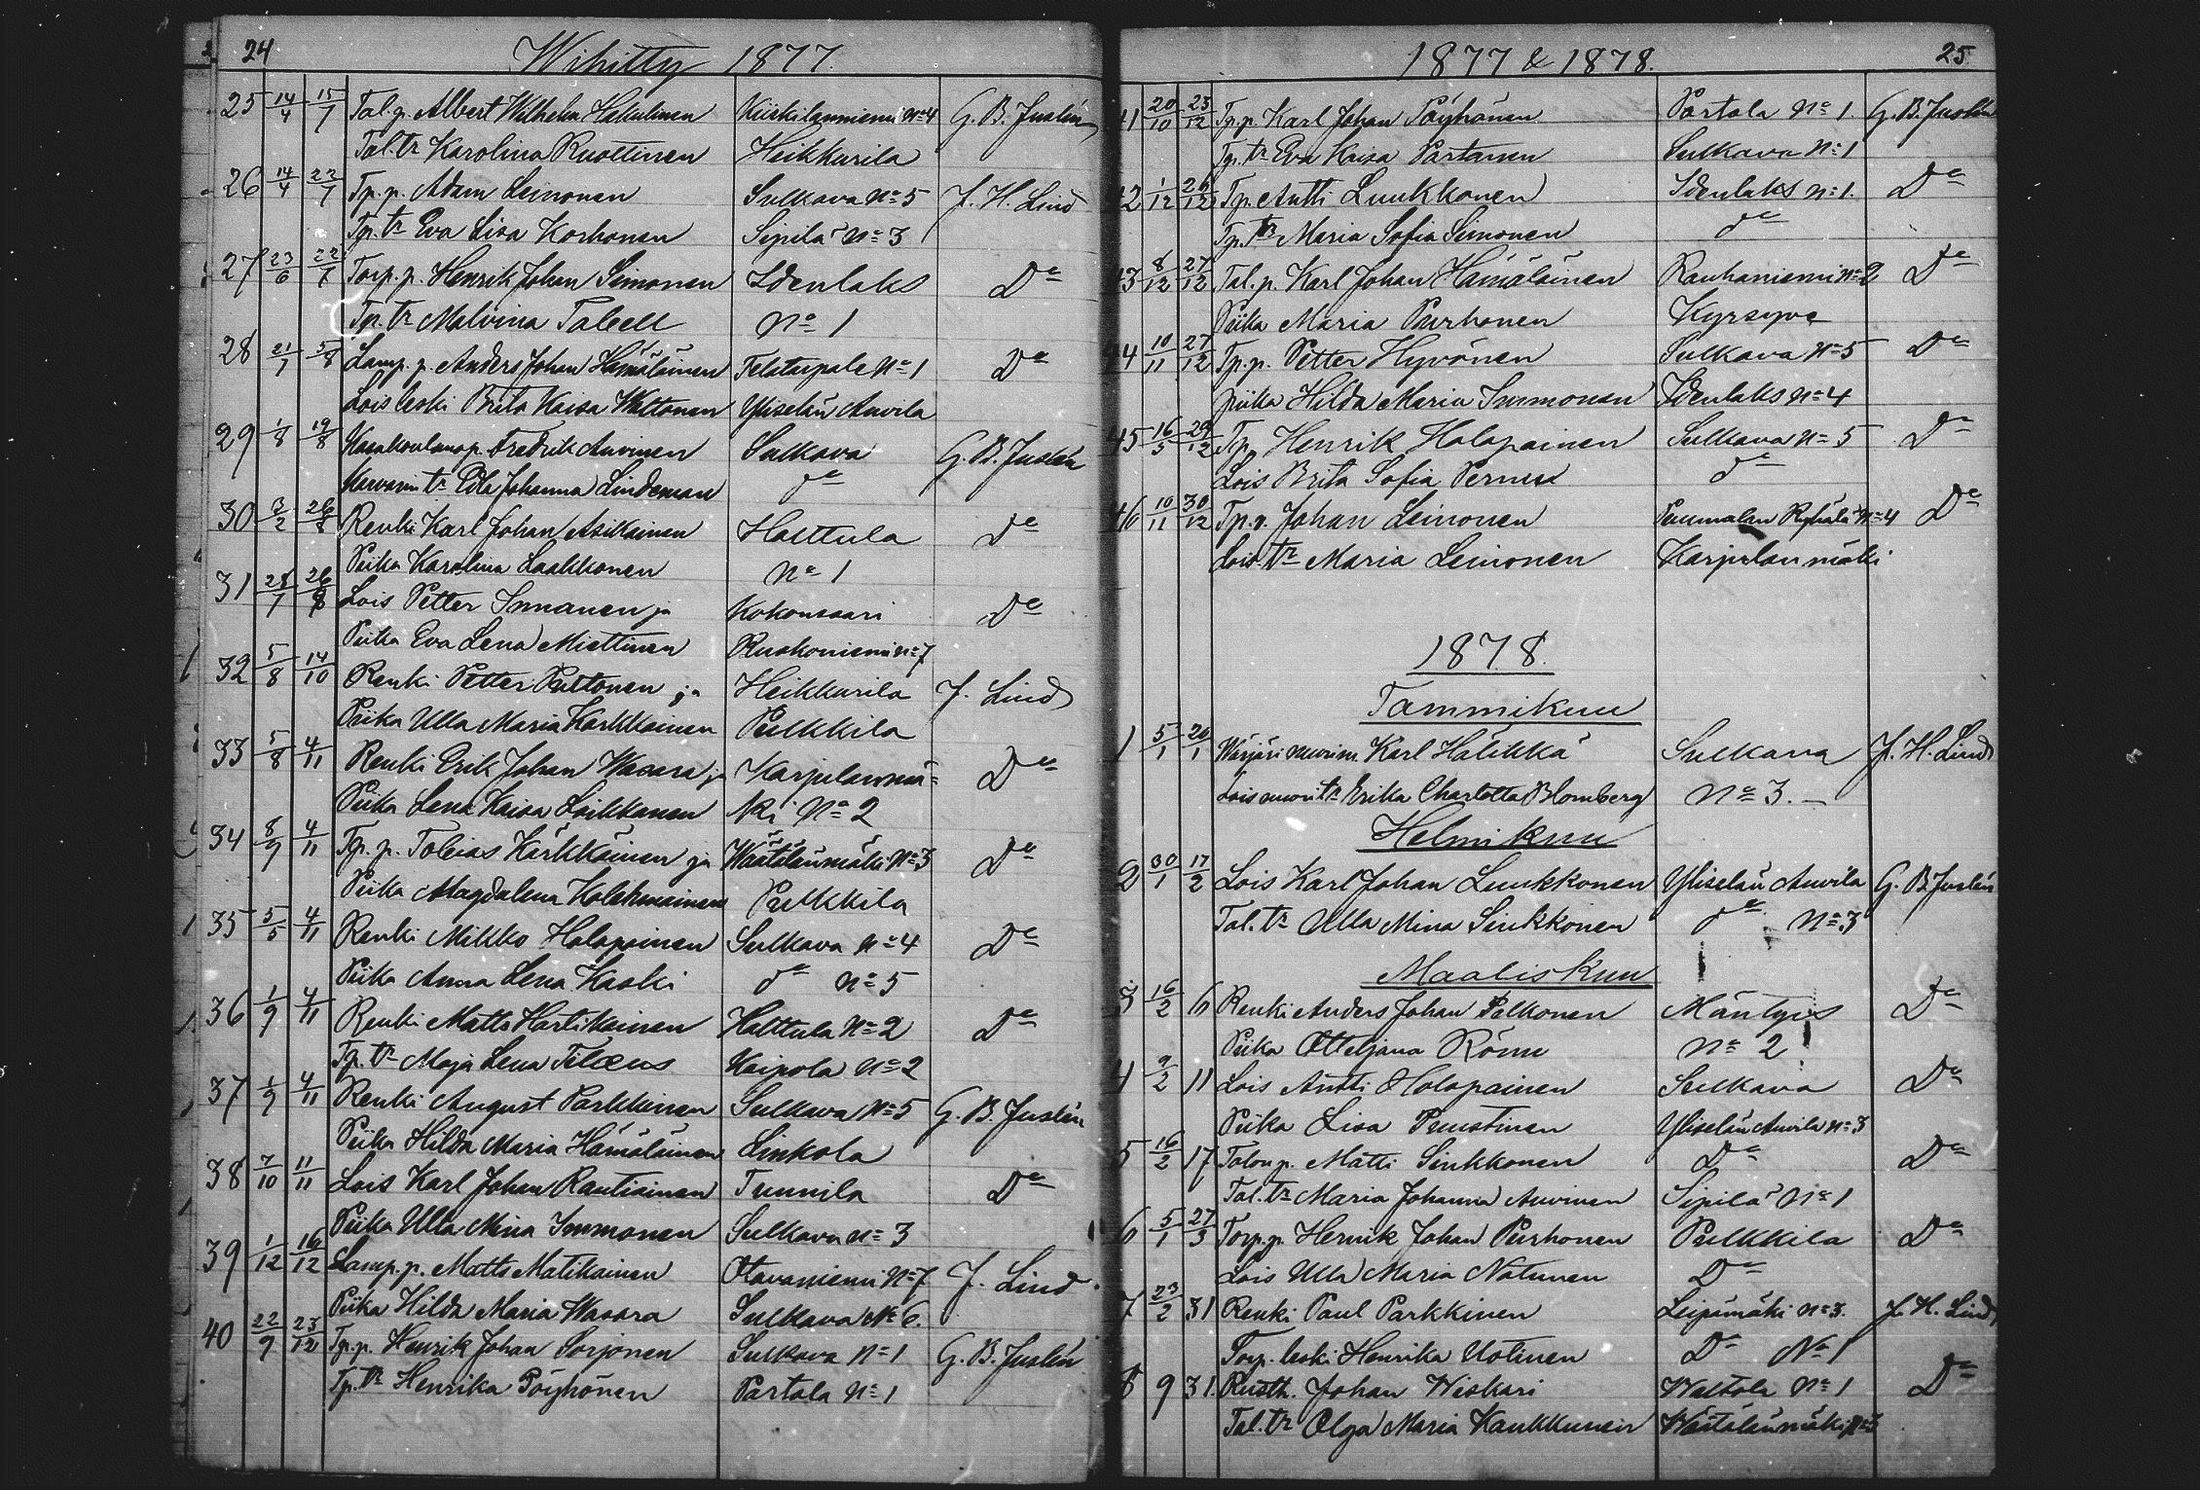 24 Wihitty 1877.
25 14/4 15/7 Tal.p. Albert Wilhelm Hakulinen Kiiskilanniemi No 4 G. B. Juslén
Tal.tr Karolina Ruottinen Heikkurila
26 14/4 22/7 Tp.p. Adam Leinonen Sulkava No 5 J. H. Lind
Tp.tr Eva Lisa Korhonen Sipilä No 3
27 23/6 22/7 Torp.p. Henrik Johan Simonen Idenlaks Do
Tp.tr Malvina Taleell No 1
28 21/7 5/8 Lamp.p. Anders Johan Hämäläinen Telataipale No 1 Do
Lois leski Brita Kaisa Waltonen Yliselän Auvila
29 1/8 19/8 Fredrik Auvinen Sulkava G. B. Juslén
tr Eda Johanna Lindeman do
30 3/2 26/8 Renki Karl Johan Asikainen Halttula Do
Piika Karolina Laakkonen No 1
31 26/8 Lois Petter Immanen ja Kokonsaari Do
Piika Eva Lena Miettinen Ruokoniemi No 7
32 5/8 14/10 Renki Petter Puttonen ja Heikkurila J. Lind
Piika Ulla Maria Karkkainen Pulkkila
33 5/8 4/11 Renki Erik Johan Wasara ja Karjulanmä= Do
Piika Lena Kaisa Loikkanen ki No 2
34 8/9 4/11 Tp.p. Tobias Kärkkäinen ja Wäätälänmäki No 3 Do
Piika Magdalena Kolehmainen Pulkkila
35 5/5 4/11 Renki Mikko Holopainen Sulkava No 4 Do
Piika Anna Lena Kaski do No 5
36 1/9 4/11 Renki Matts Hartikainen Halttula No 2 Do
Tp.tr Maja Lena Tilaeus Kaipola No 2
37 1/9 4/11 Renki August Parkkinen Sulkava No 5 G. B. Juslén
Piika Hilda Maria Hämäläinen Linkola
38 7/10 11/11 Lois Karl Johan Rautiainen Tunnila Do
Piika Ulla Mina Immonen Sulkava No 3
39 1/12 16/12 Lamp.p. Matts Matikainen Otavaniemi No 7 J. Lind
Piika Hilda Maria Wasara Sulkava No 6.
40 22/9 23/12 Tp.p. Henrik Johan Sorjonen Sulkava No 1 G. B. Juslén
Tp.tr Henrika Pöyhönen Partala No 1
1877 & 1878. 25
41 20/10 23/12 Tp.p. Karl Johan Pöyhönen Partala No 1. G. B. Juslén
Tp.tr Eva Kaisa Partanen Sulkava No 1
42 1/12 26/12 Tp. Antti Luukkonen Idenlaks No 1. Do
Tp.tr Maria Sofia Simonen do
43 8/12 27/12 Tal.p. Karl Johan Hämäläinen Rauhaniemi No 2 Do
Piika Maria Purhonen Kyrsyya
44 10/11 27/12 Tp.p. Petter Hyvönen Sulkava No 5 Do
piika Hilda Maria Immonen Idenlaks No 4
45 16/5 29/12 Tp. Henrik Holopainen Sulkava No 5 Do
Lois Brita Sofia Pernus do
46 10/11 30/12 Tp.p. Johan Leinonen Puumalan Ryhälä No 4 Do
Lois.tr Maria Leinonen Karjulanmäki
1878.
Tammikuu
1 5/1 20/1 Wärjäri nuorim. Karl Hälikkä Sulkava J. H. Lind
Lois nuori tr Erika Charlotta Blomberg No 3.
Helmikuu
2 30/1 17/2 Lois Karl Johan Luukkonen Yliselän Auvila G. B. Juslén
Tal.tr Ulla Mina Sinkkonen do No 3
Maaliskuu
3 16/2 6 Renki Anders Johan Pelkonen Mäntyis Do
Piika Otteljana Römu No 2
4 9/2 11 Lois Antti Holopainen Sulkava Do
Piika Lisa Puustinen Yliselän Auvila No 3
5 16/2 17 Talon p. Matti Sinkkonen Do Do
Tal.tr Maria Johanna Auvinen Sipilä No 1
6 5/1 27/3 Torp.p. Henrik Johan Purhonen Pulkkila Do
Lois Ulla Maria Natunen Do
7 23/2 31 Renki Paul Parkkinen Leipämäki No 3. J. H. Lind
Torp. leski Henrika Uotinen Do No 1
8 9 31 Rusth. Johan Wiskari Waltola No 1 Do
Tal.tr Olga Maria Kaukkunen Wäätälänmäki No 3